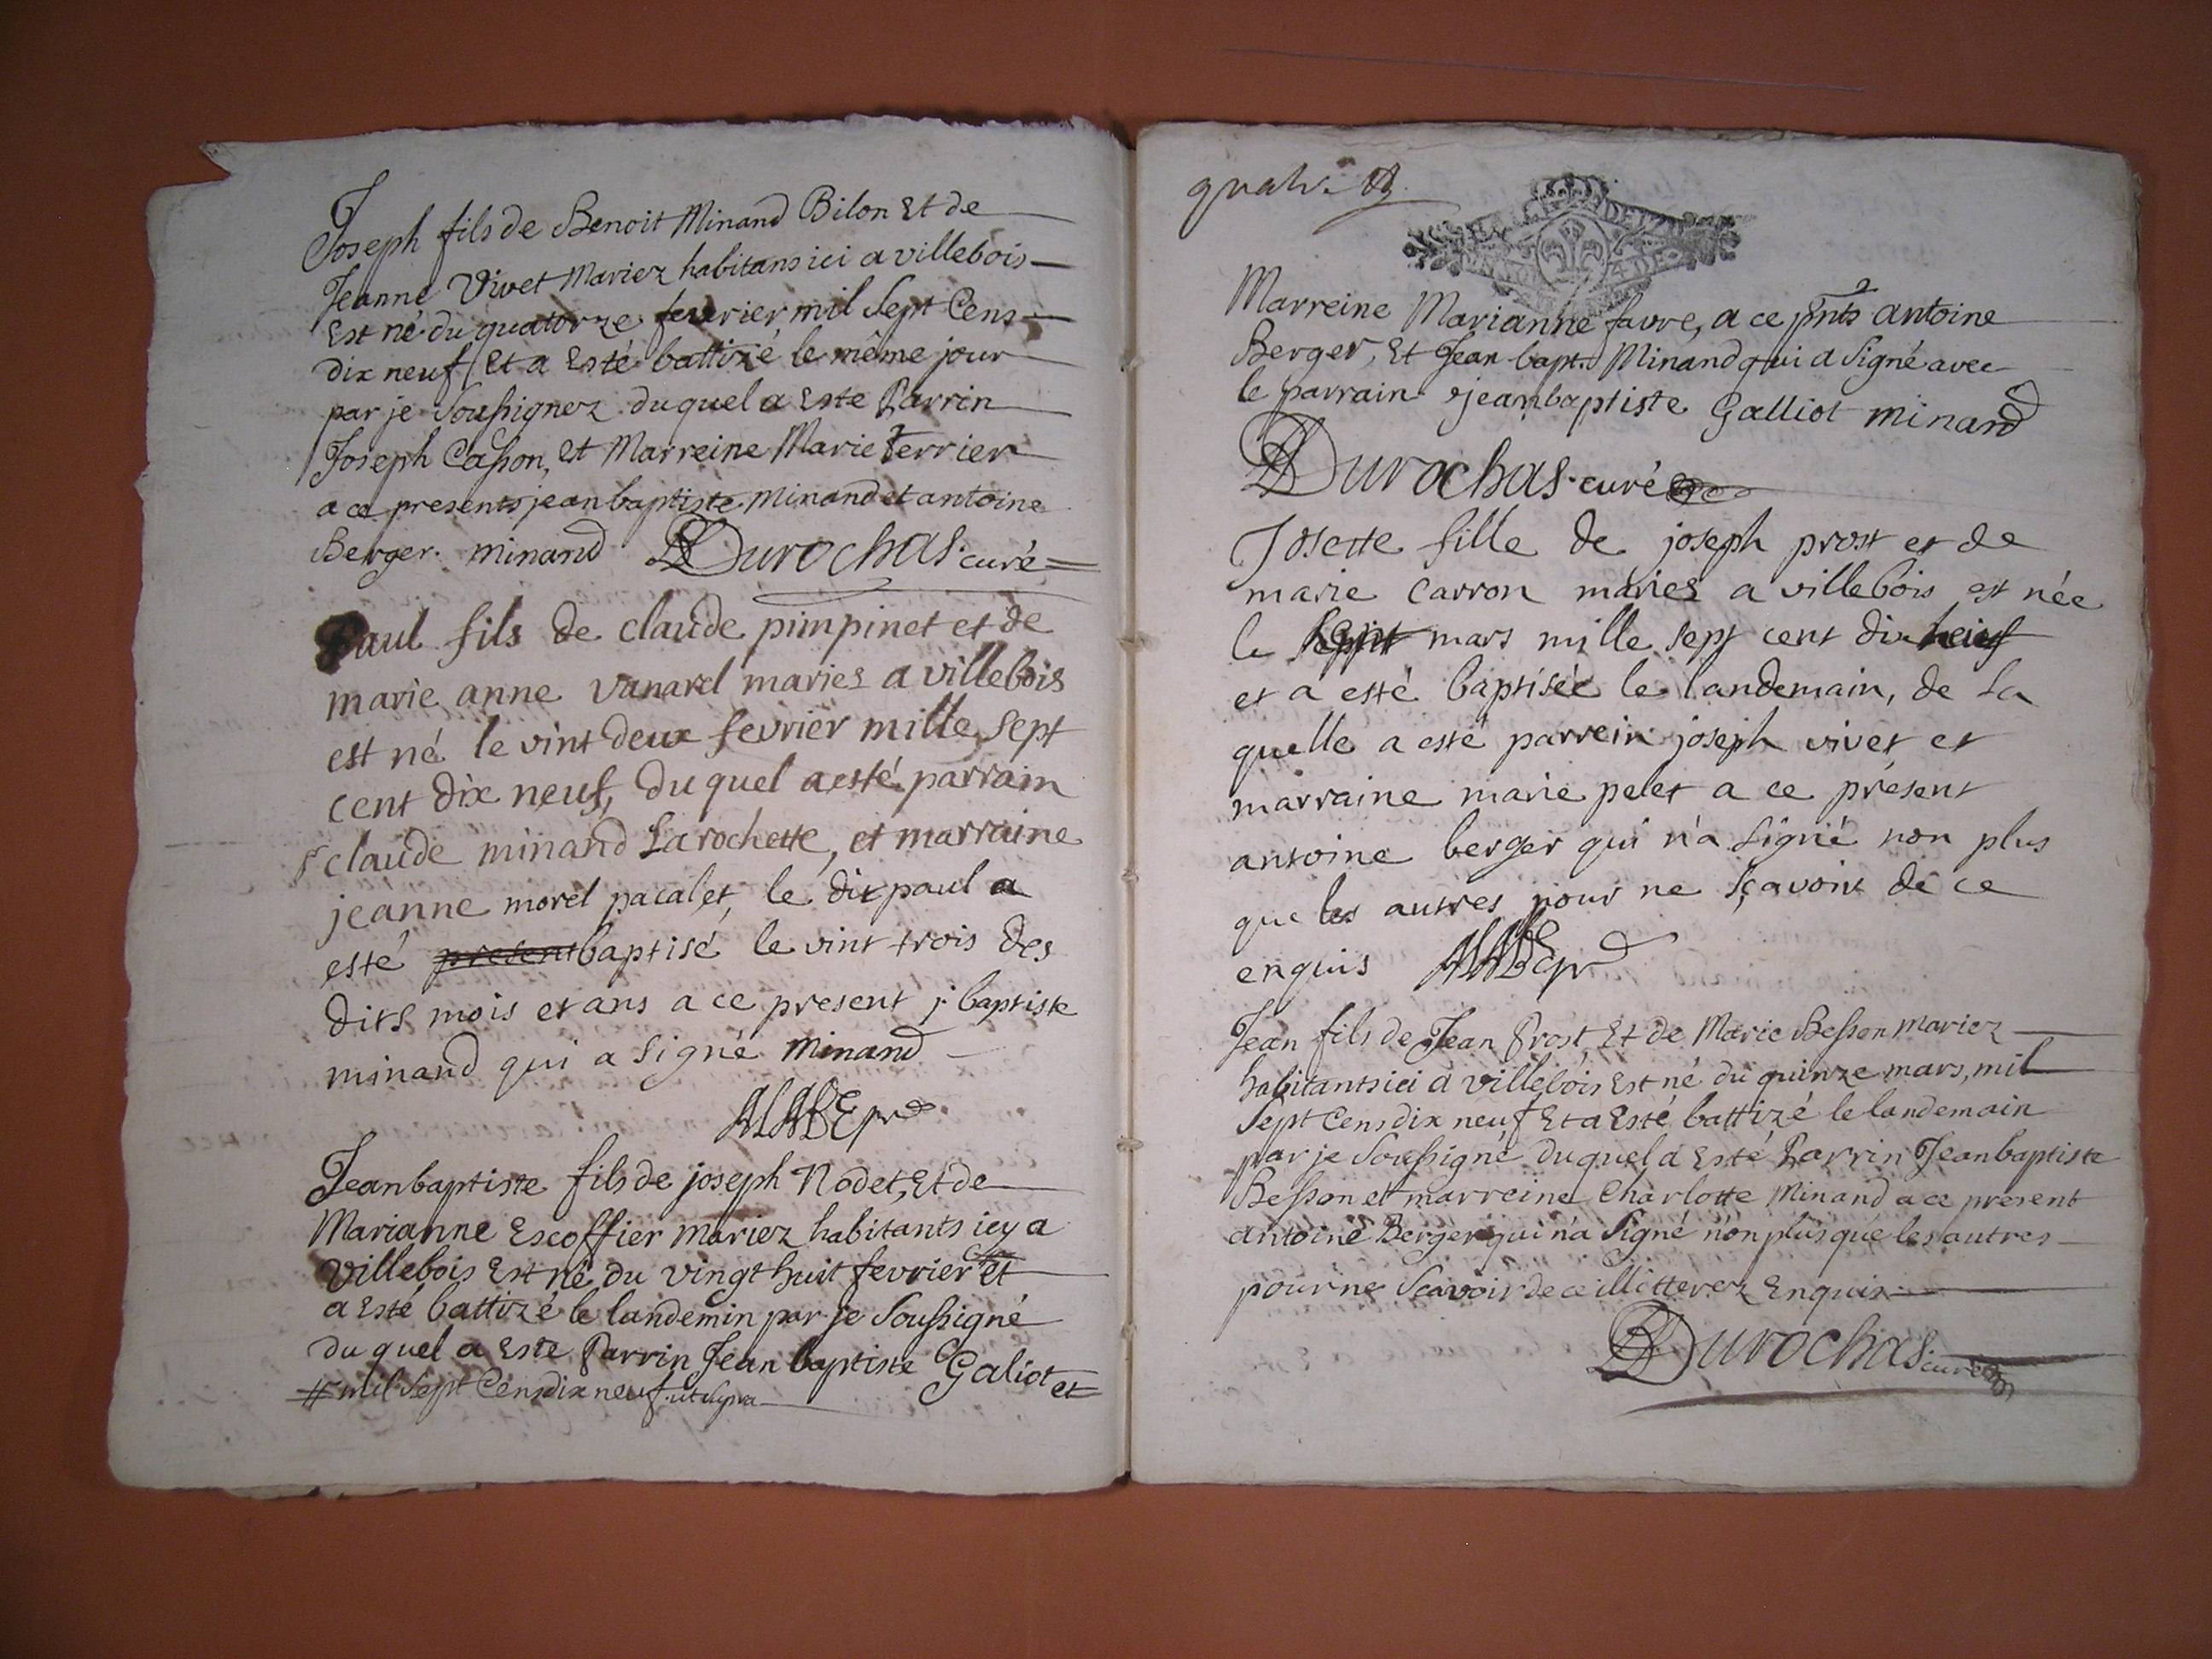 Joseph fils de Benoit Minand Bilon Et de
Jeanne Vivet Mariez habitans ici a villebois
Est né du quatorze fevrier mil Sept Cens
dix neuf Et a Esté battizé le même jour
par je Soussignez duquel a Este Parrin
Joseph Casson, et Marreine Marie Terrier
a ce presents jean baptiste Minand et antoine
Berger. minand Durochas curé
Paul fils de claude pimpinet et de
marie anne vanarel maries a villebois
est né le vint deux fevrier mille sept
cent dix neuf, du quel a esté parrain
sr claude minand Larochette, et marraine
jeanne morel pacalet, le dit paul a
esté present baptisé le vint trois des
dits mois et ans a ce present j. baptiste
minand qui a signé minand
Jean baptiste fils de joseph Nodet, Et de
Marianne Escoffier mariez habitants icy a
villebois Est né du vingt huit fevrier # et
a Esté battizé le landemin par je Soussigné
du quel a Este Parrin Jean baptiste Galiot et
# mil Sept Cens dix neuf. ut supra
Marreine Marianne favre, a ce pnts antoine
Berger, Et Jean bapt. Minand qui a Signé avec
le parrain jean baptiste Galliot minand
Durochas curé
Josette fille de joseph prost et de
marie carron mariez a villebois est née
le sept mars mille sept cent dix neuf
et a esté baptisée le landemain, de la
quelle a esté parrein joseph vivet et
marraine marie pelet a ce présent
antoine berger qui n'a signé non plus
que les autres pour ne sçavoir de ce
enquis
Jean fils de Jean Prost Et de Marie Besson mariez
habitants ici a villebois Est né du quinze mars, mil
Sept Cens dix neuf Et a Esté battizé le landemain
par je Soussigné duquel a Esté Parrin Jean baptiste
Besson et marreine Charlotte Minand a ce present
antoine Berger qui n'a Signé non plus que les autres
pour ne Scavoir de ce illitterez Enquis
Durochas curé